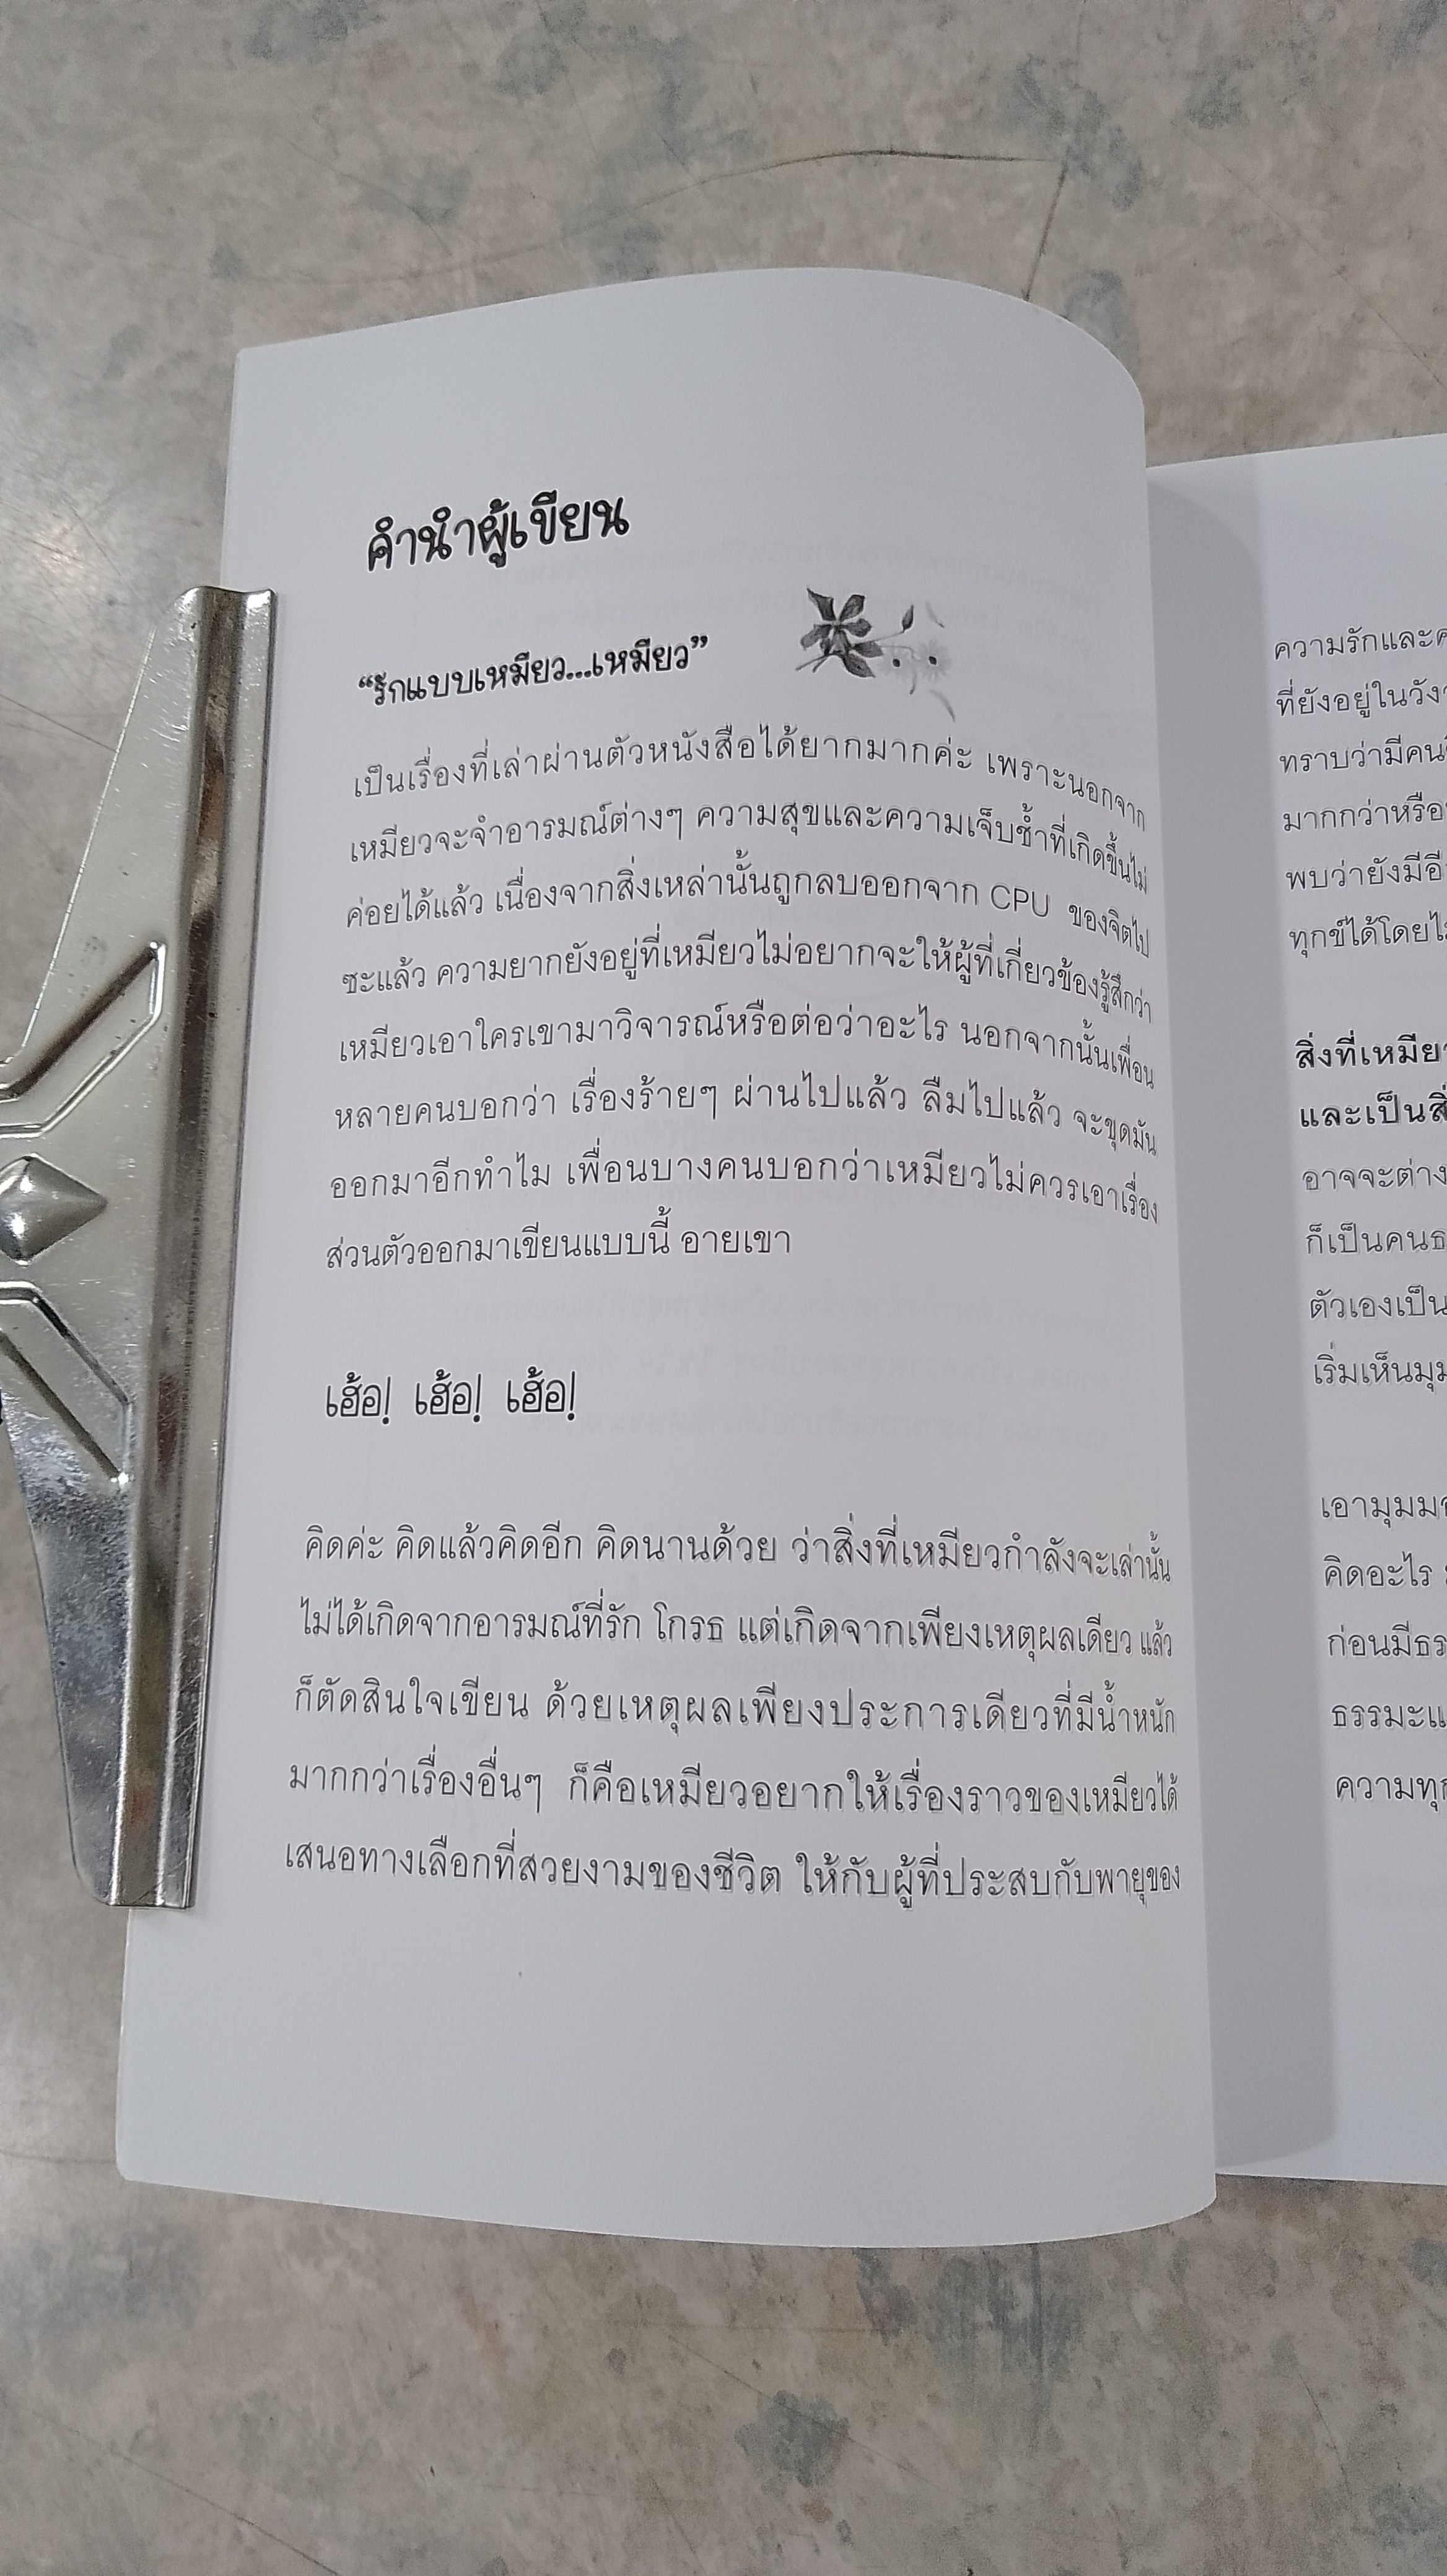 คำนำผู้เขียน
“รักแบบเหมียว...เหมียว”
เป็นเรื่องที่เล่าผ่านตัวหนังสือได้ยากมากค่ะ เพราะนอกจาก
เหมียวจะจำอารมณ์ต่างๆ ความสุขและความเจ็บช้ำที่เกิดขึ้นไม่
ค่อยได้แล้ว เนื่องจากสิ่งเหล่านั้นถูกลบออกจาก CPU ของจิตไป
ซะแล้ว ความยากยังอยู่ที่เหมียวไม่อยากจะให้ผู้ที่เกี่ยวข้องรู้สึกว่า
เหมียวเอาใครเขามาวิจารณ์หรือต่อว่าอะไร นอกจากนั้นเพื่อน
หลายคนบอกว่า เรื่องร้ายๆ ผ่านไปแล้ว ลืมไปแล้ว จะขุดมัน
ออกมาอีกทำไม เพื่อนบางคนบอกว่าเหมียวไม่ควรเอาเรื่อง
ส่วนตัวออกมาเขียนแบบนี้ อายเขา
เฮ้อ! เฮ้อ! เฮ้อ!
คิดค่ะ คิดแล้วคิดอีก คิดนานด้วย ว่าสิ่งที่เหมียวกำลังจะเล่านั้น
ไม่ได้เกิดจากอารมณ์ที่รัก โกรธ แต่เกิดจากเพียงเหตุผลเดียว แล้ว
ก็ตัดสินใจเขียน ด้วยเหตุผลเพียงประการเดียวที่มีน้ำหนัก
มากกว่าเรื่องอื่นๆ ก็คือเหมียวอยากให้เรื่องราวของเหมียวได้
เสนอทางเลือกที่สวยงามของชีวิต ให้กับผู้ที่ประสบกับพายุของ
ความรักและ
ที่ยังอยู่ใน
ทราบว่ามีคน
มากกว่าหรือ
พบว่ายังมี
ทุกข์ได้โดย
สิ่งที่
และเป็น
อาจจะต่าง
ก็เป็นคน
ตัวเองเป็น
เริ่มเห็น
เอา
คิดอะไร
ก่อนมี
ธรรมะ
ความ